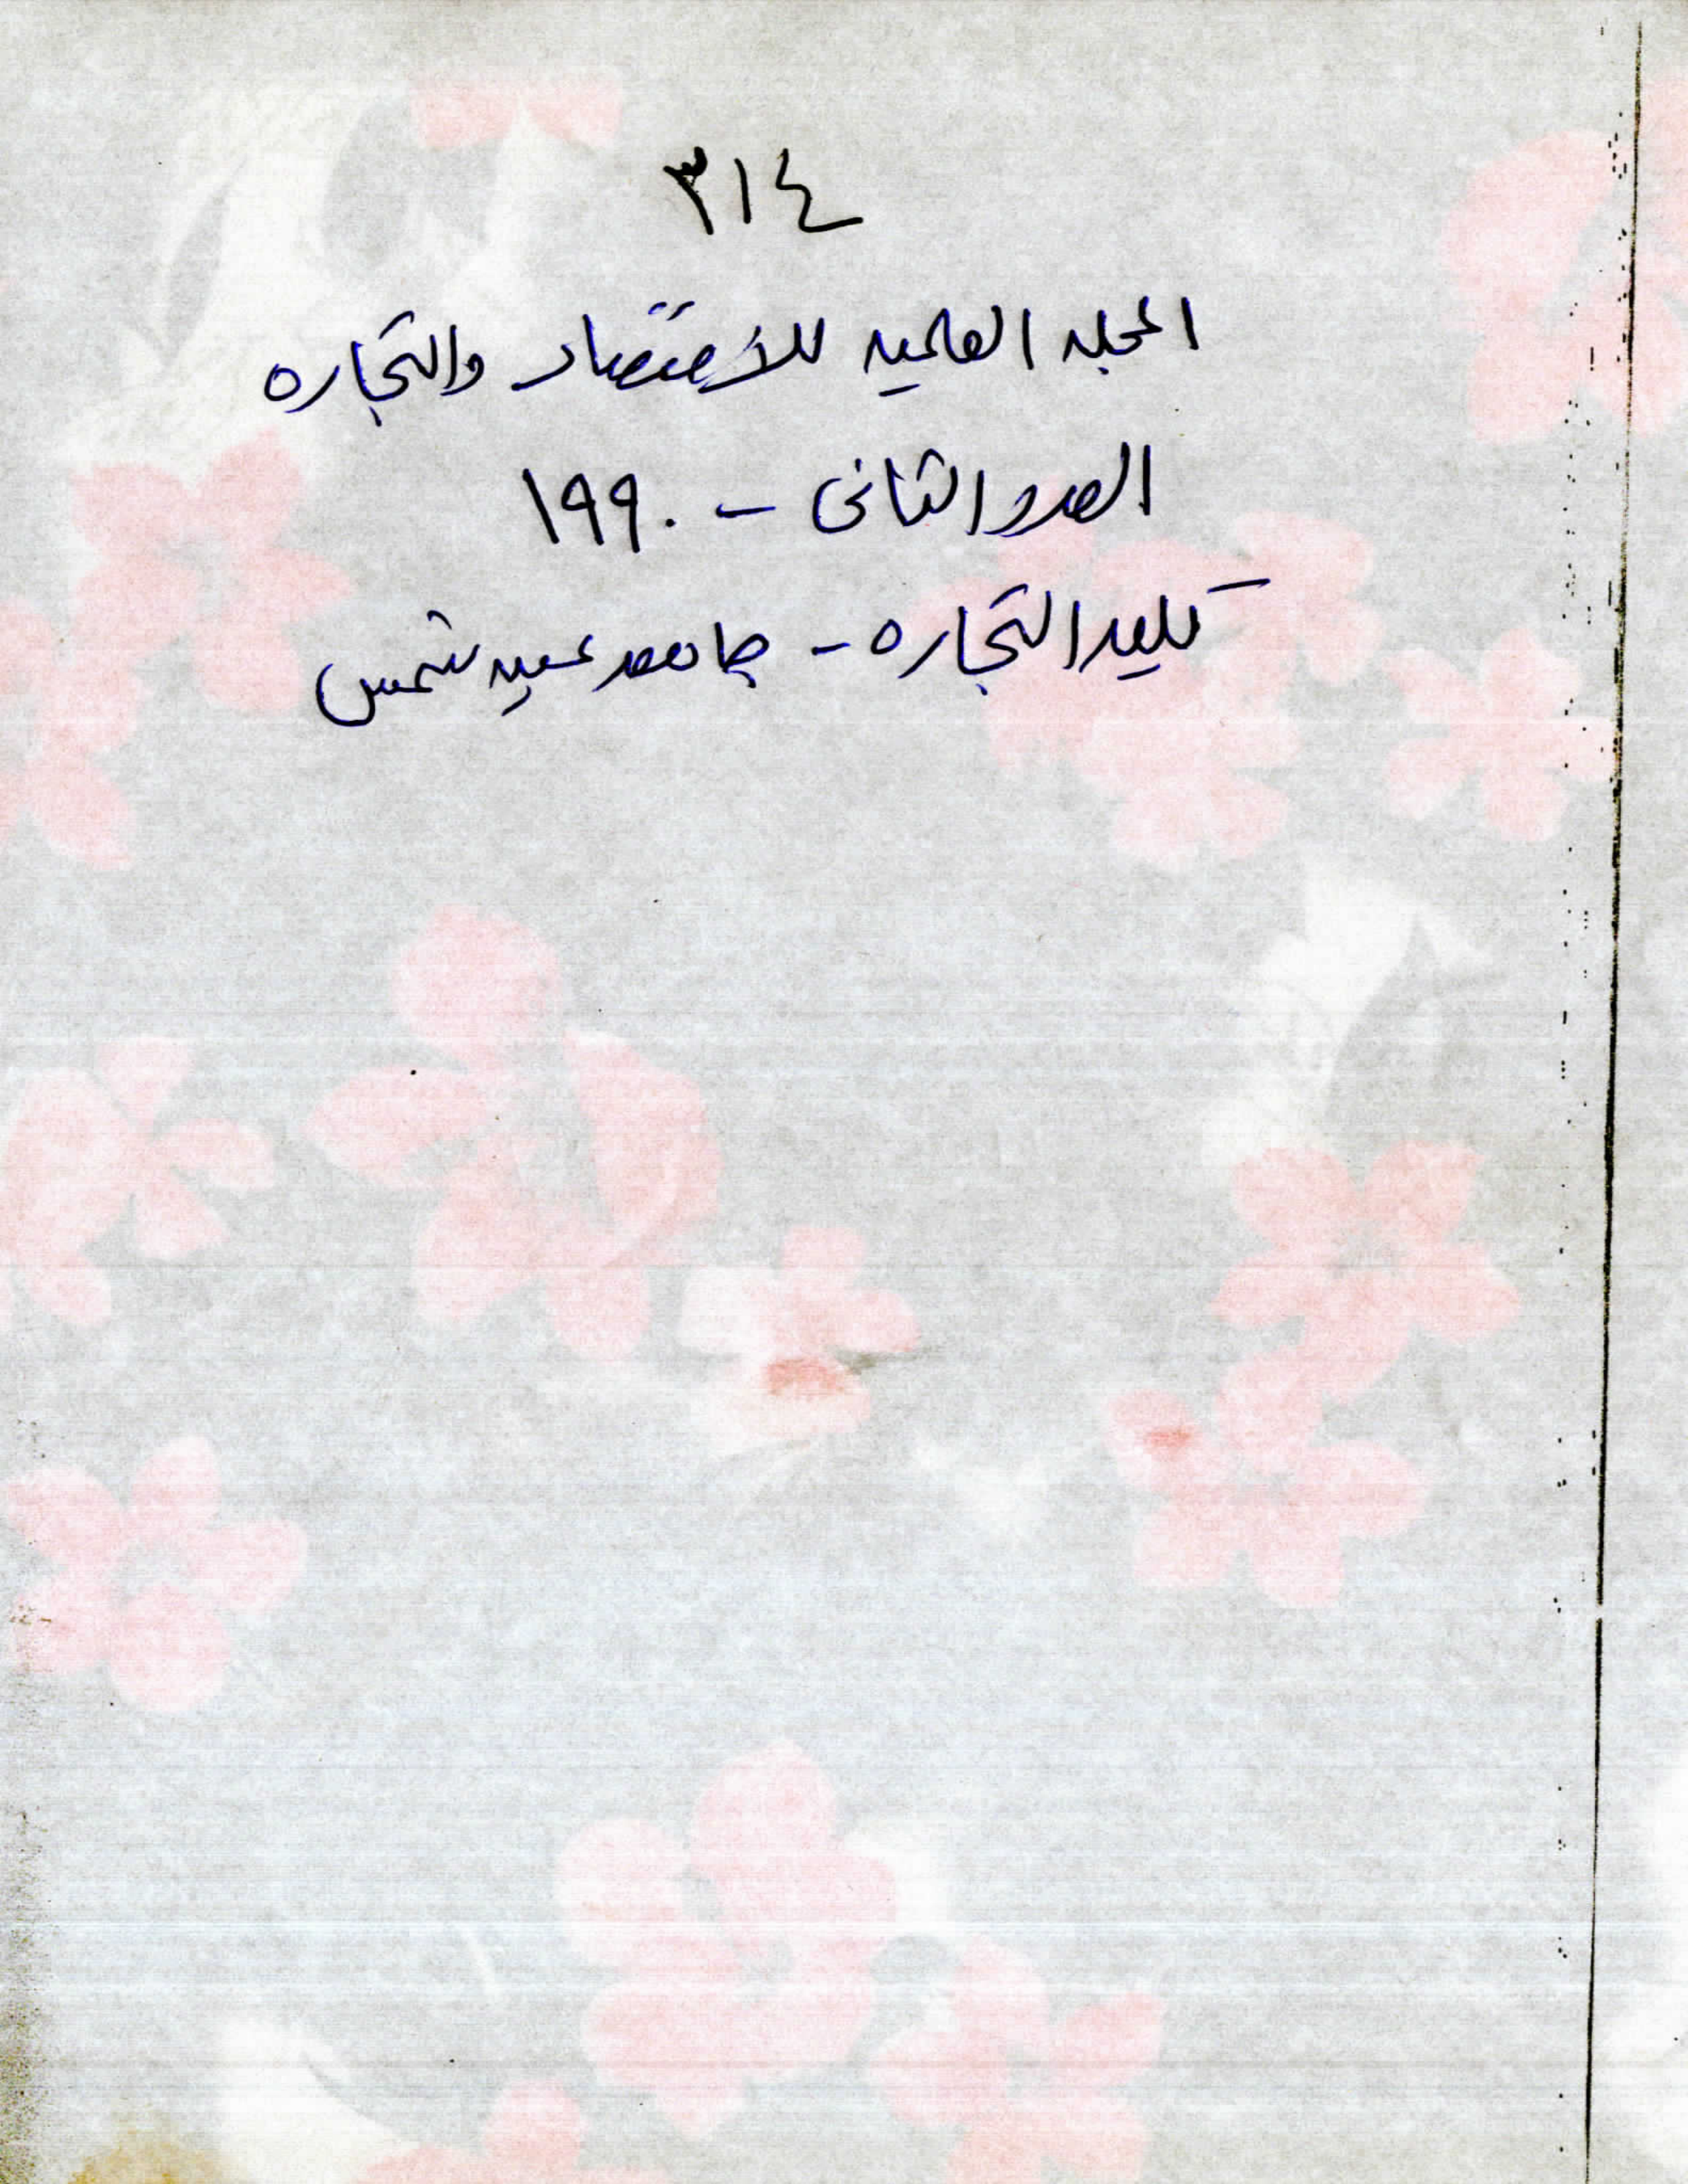 ٣١٤
المجله العلميه للأقتصاد والتجاره
العدد الثانى - ١٩٩٠
كليه التجاره - جامعه عين شمس